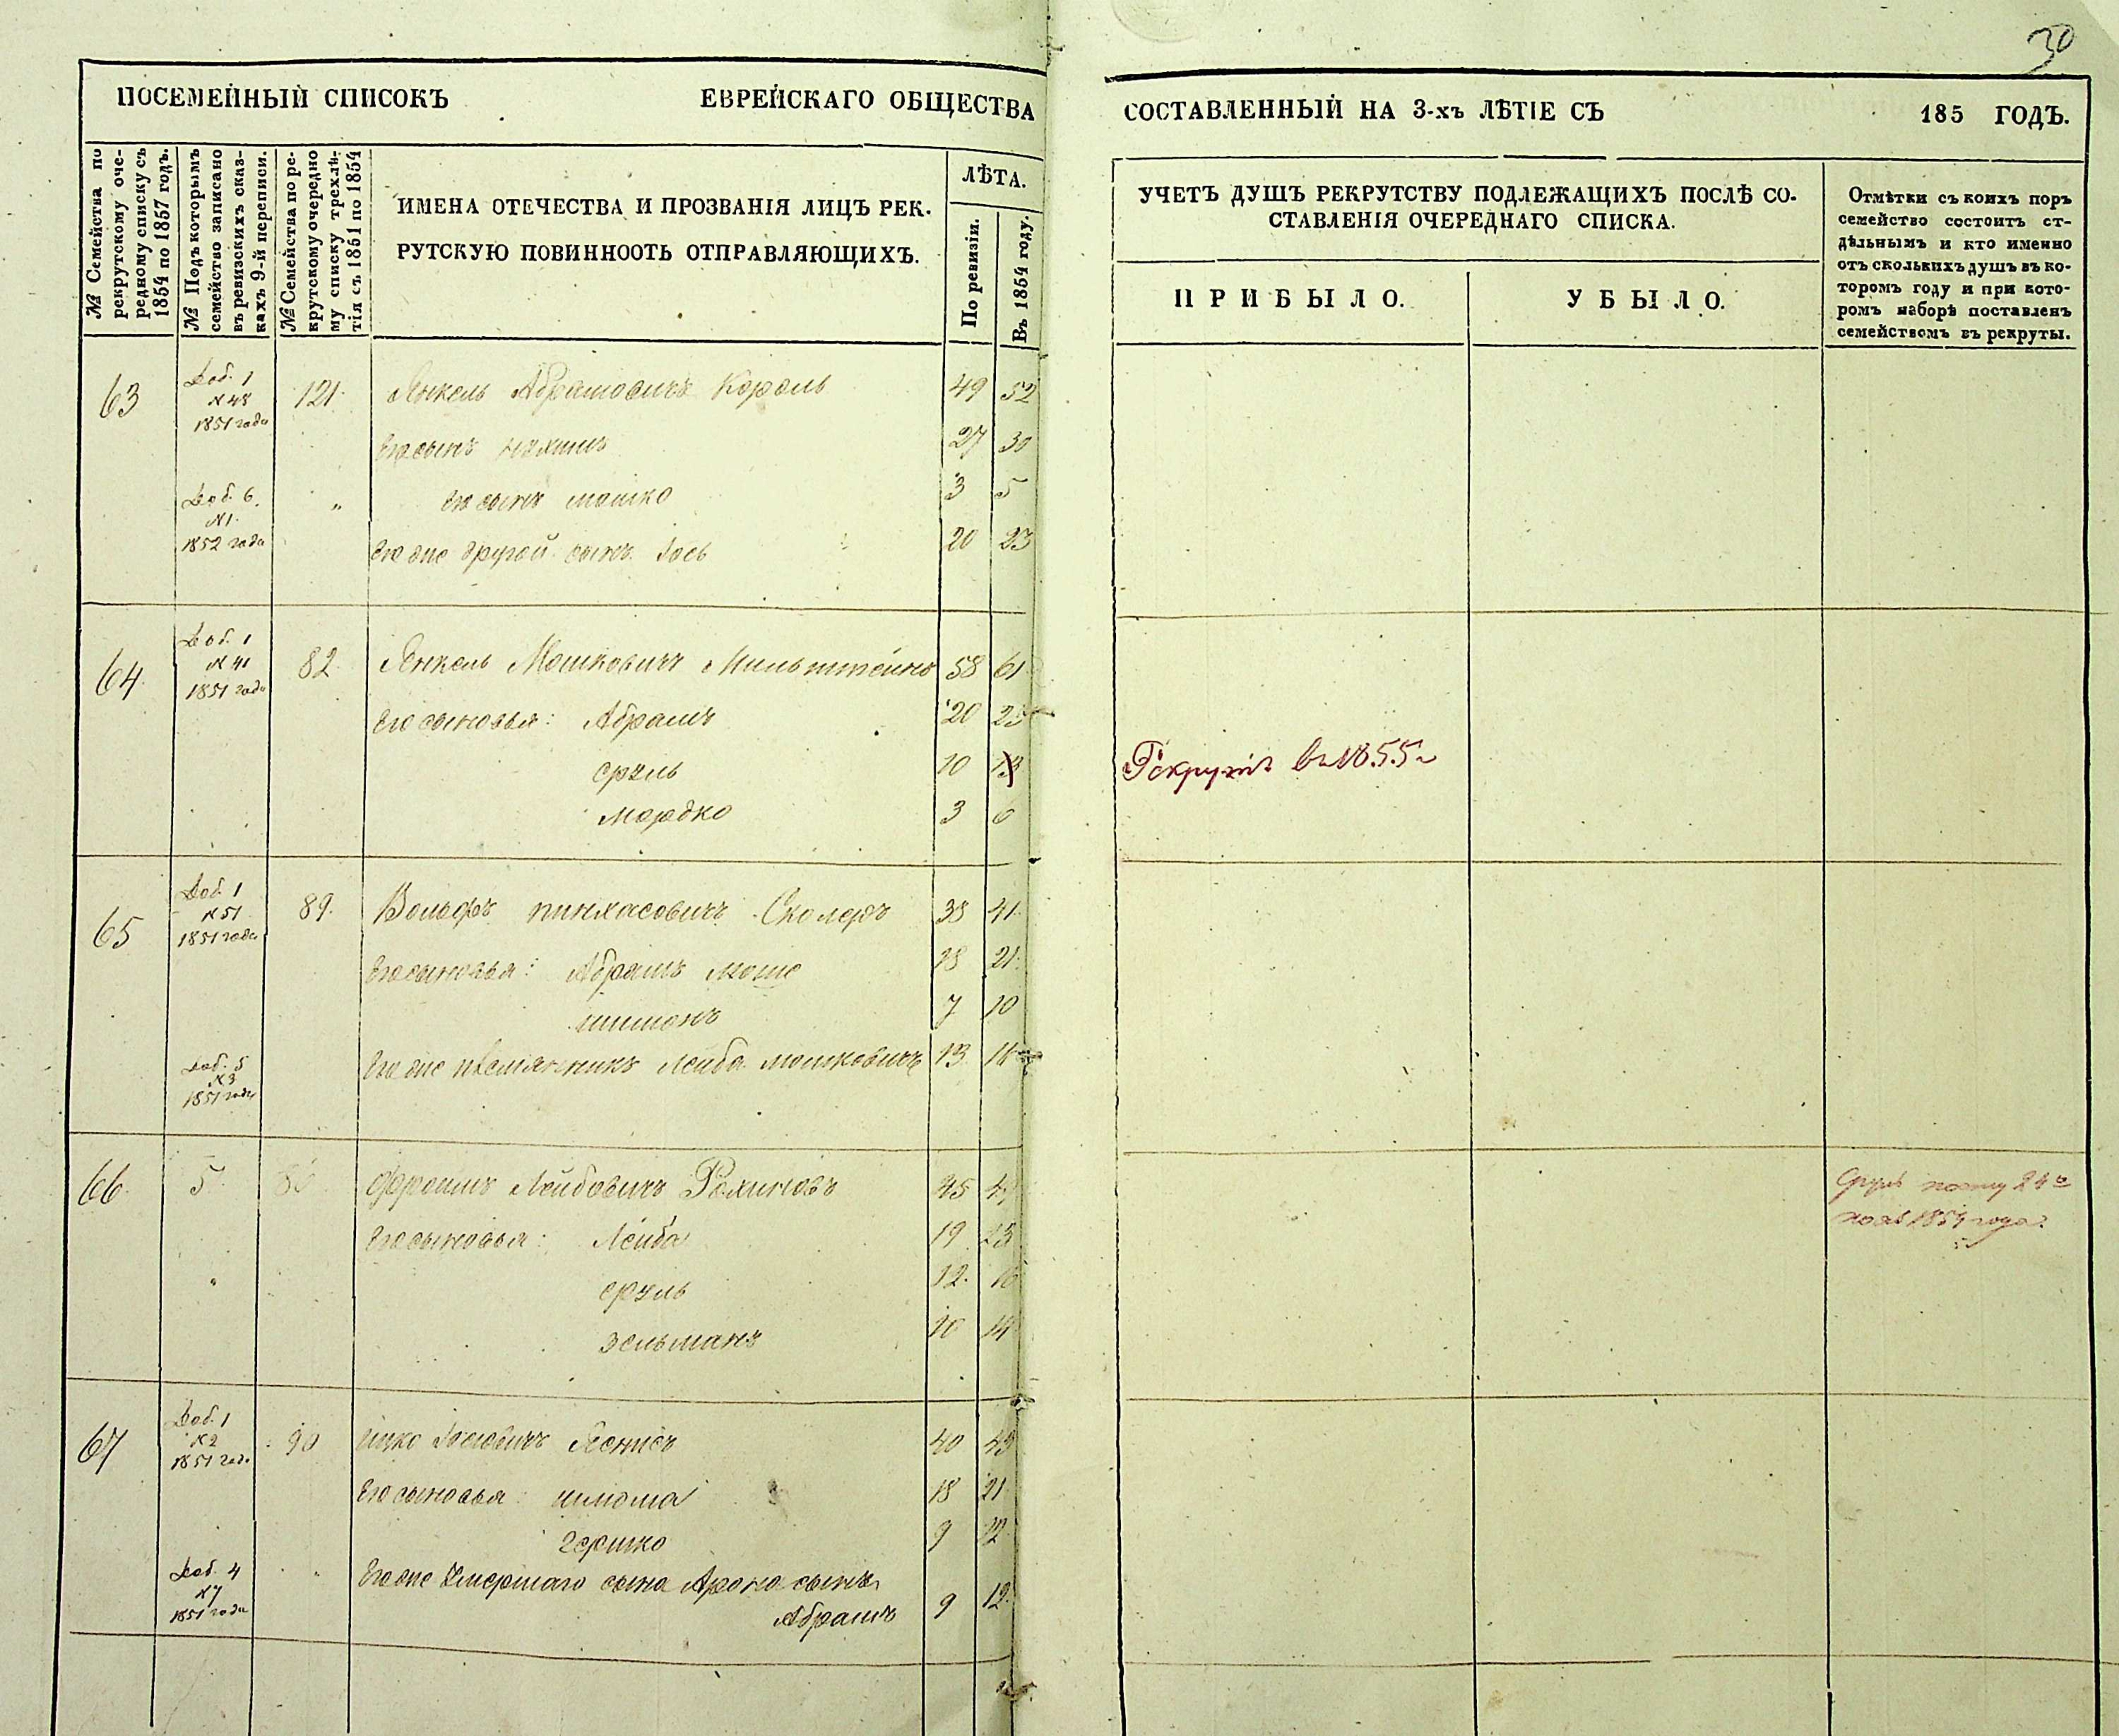 30
ПОСЕМЕЙНЫЙ СПИСОКЪ ЕВРЕЙСКАГО ОБЩЕСТВА СОСТАВЛЕННЫЙ НА 3-хъ ЛѢТІЕ СЪ 185 ГОДЪ.
№ Семейства по
рекрутскому оче-
редному списку съ
1854 по 1857 годъ.
№ Подъ которымъ
семейство записано
въ ревизскихъ сказ-
кахъ 9-й переписи.
№ Семейства по ре-
крутскому очередно
му списку трехлѣ-
тія съ 1851 по 1854
ИМЕНА ОТЕЧЕСТВА И ПРОЗВАНІЯ ЛИЦЪ РЕК-
РУТСКУЮ ПОВИННООТЬ ОТПРАВЛЯЮЩИХЪ.
ЛѢТА.
По ревизіи.
Въ 1854 году.
УЧЕТЪ ДУШЪ РЕКРУТСТВУ ПОДЛЕЖАЩИХЪ ПОСЛѢ СО-
СТАВЛЕНІЯ ОЧЕРЕДНАГО СПИСКА.
ПРИБЫЛО.
УБЫЛО.
Отмѣтки съ коихъ поръ
семейство состоитъ от-
дѣльнымъ и кто именно
отъ сколькихъ душъ въ ко-
торомъ году и при кото-
ромъ наборѣ поставленъ
семействомъ въ рекруты.
63 Доб. 1 121 Янкель Абрамовичъ Король 49 52
№ 48
1851 года
Его сынъ Нахимъ 27 30
Доб. 6. " Его сынъ Мошко 3 5
№ 1.
1852 года
Его же другой сынъ Іось 20 23
64. Доб. 1 82 Янкель Мошковичъ Мильштейнъ 58 61
№ 41
1851 года
Его сыновья: Абрамъ 20 23
Сруль 10 13 Рекрутъ въ 1855 г
Мордко 3 6
65 Доб. 1 89. Вольфъ Пинхасовичъ Сколеръ 38 41
№ 51
1851 года
Его сыновья: Абрамъ Моше 18 21.
Шимонъ 7 10
Доб. 5 Его же племянникъ Лейба Мошковичъ 13 16
№ 3
1851 года
66. 5 Фроимъ Лейбовичъ Рахиновъ 45
1854 года.
Его сыновья: Лейба 19 23
" Сруль 12. 16
Зельманъ 10 14
67 Доб. 1 90 Ицко Іосіовичъ 40 43
№ 2
1851 года
Его сыновья: Шлома 18 21
Гершко 9 12
Доб. 4 " Его же умершаго сына Арона сынъ
№ 7
1851 года
Абрамъ 9 12.